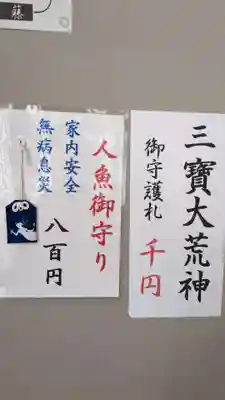 藤
三寶大荒神
御守護札
千円
人魚御守り
家内安全
無病息災
八百円